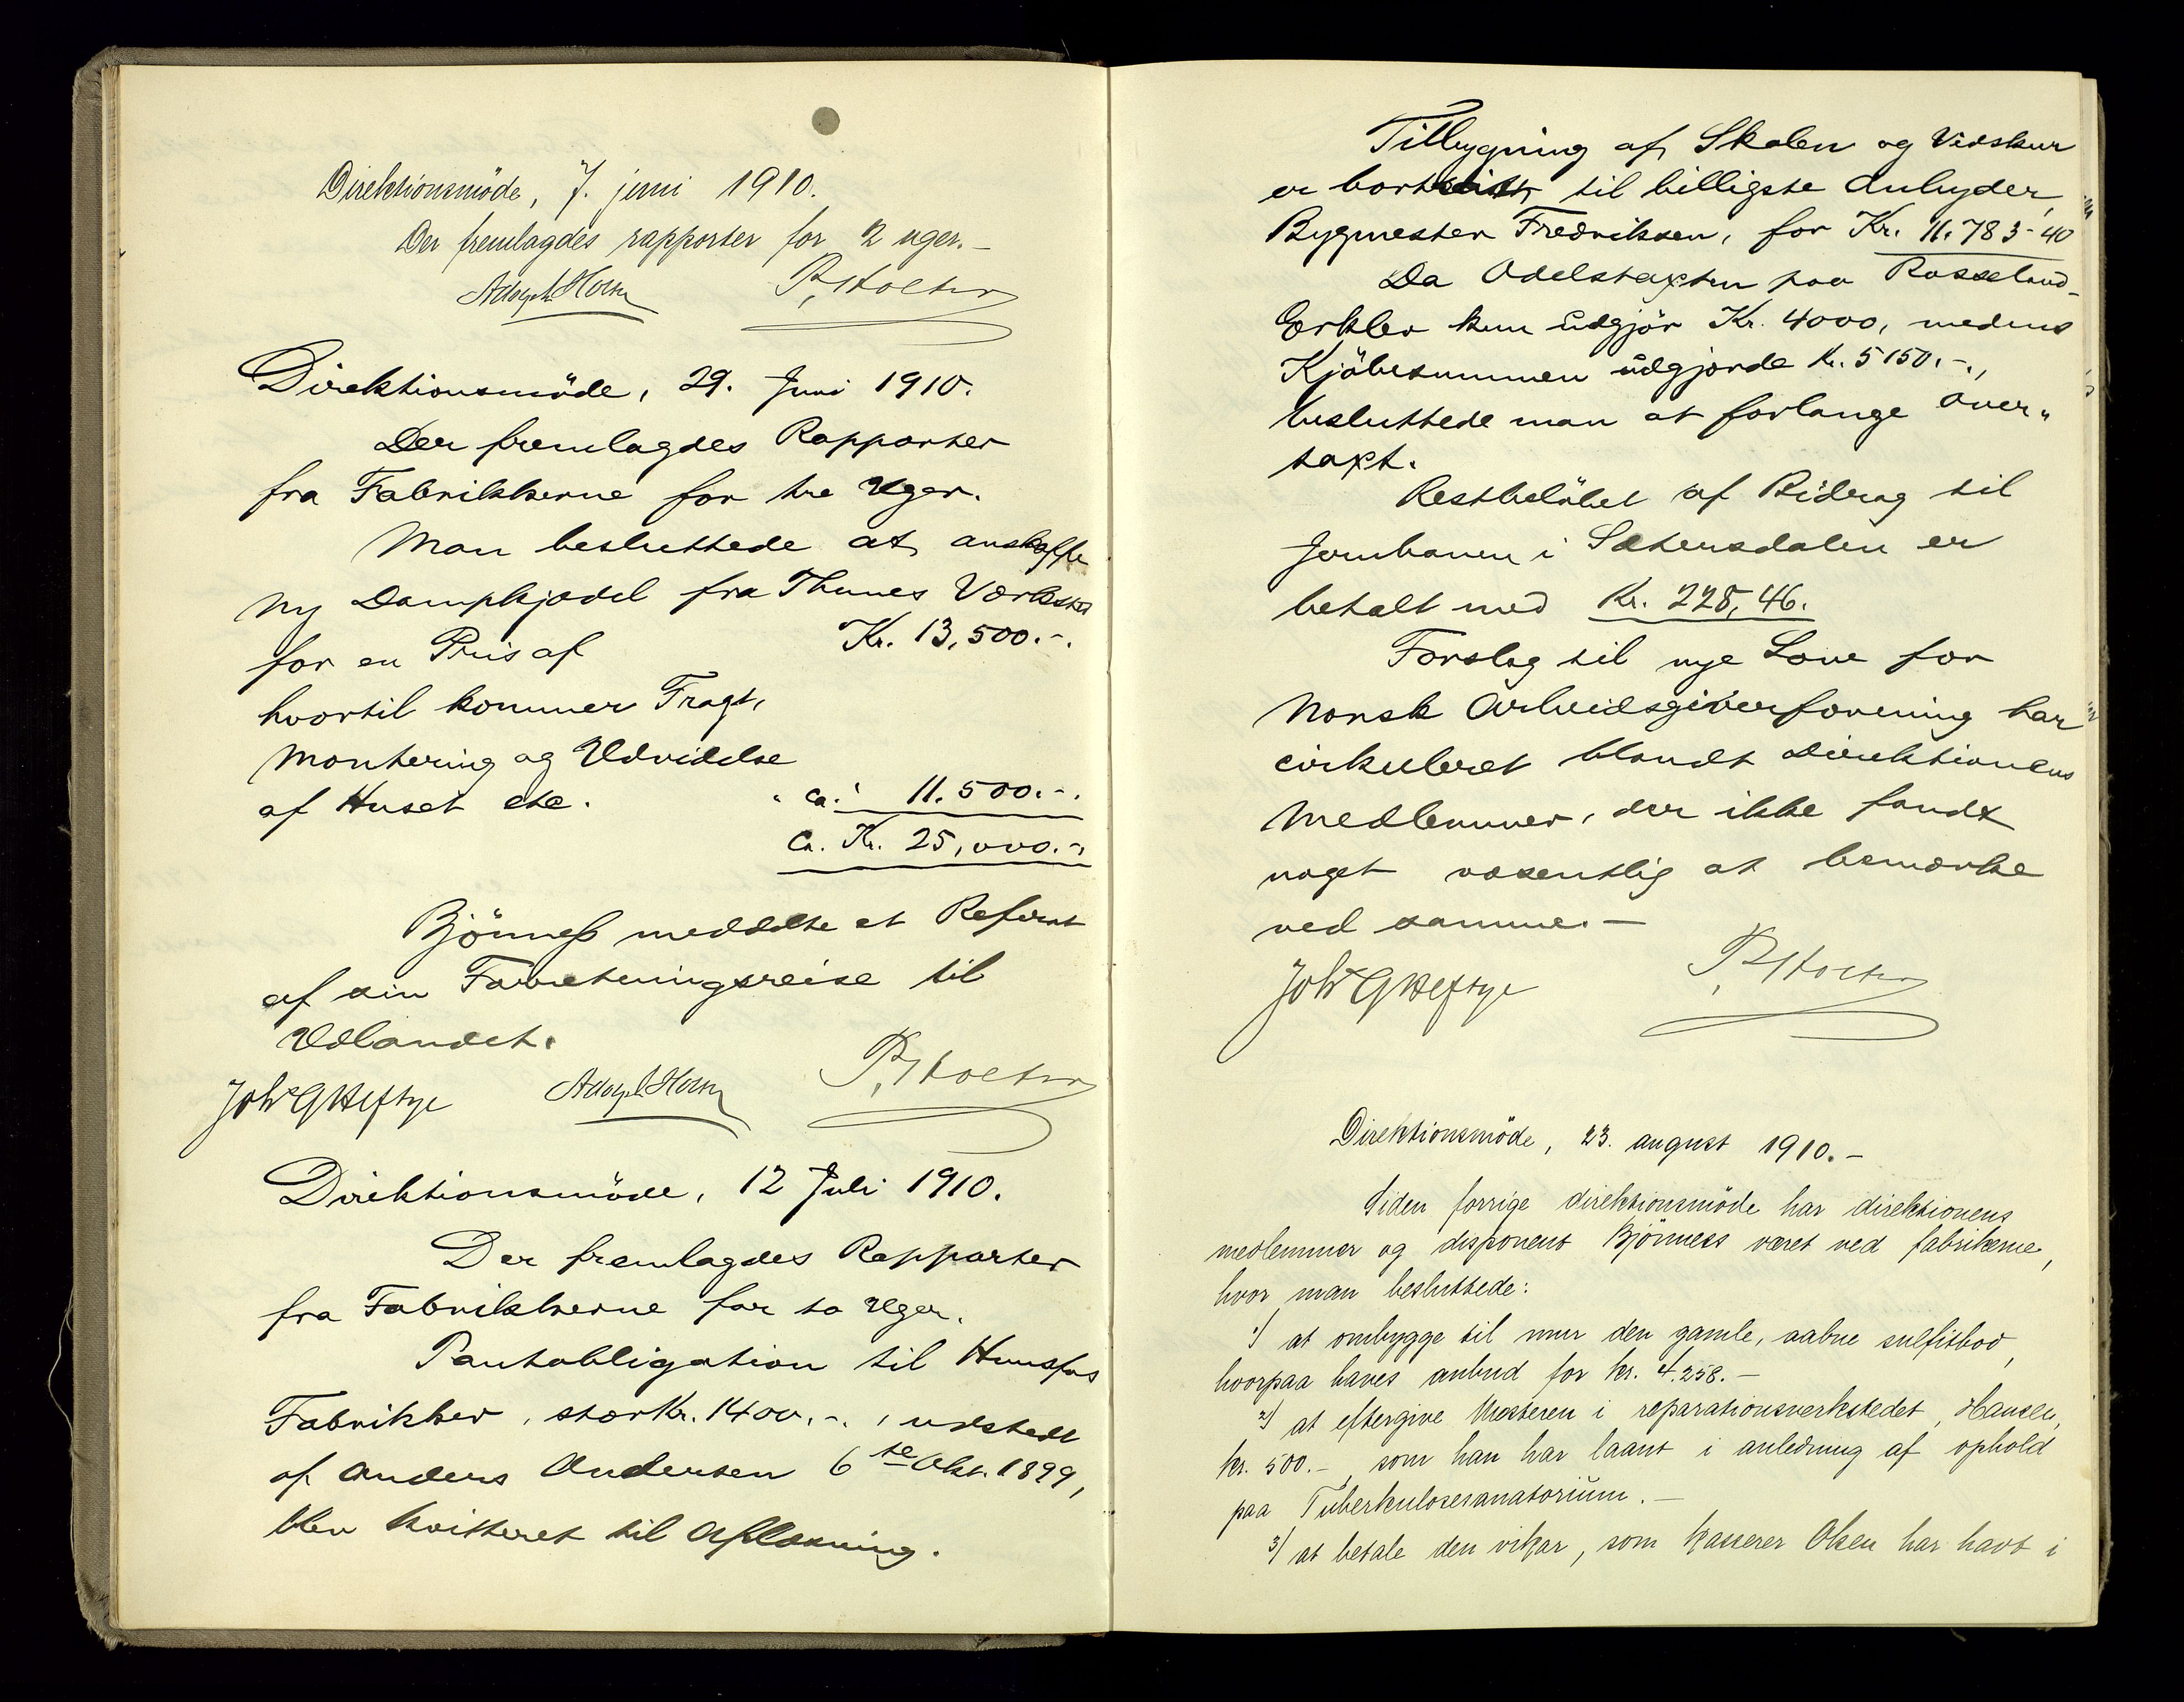 Direktionsmöde, 7. juni 1910.
Der fremlagdes rapporter for 2 uger.-
Direktionsmöde, 29. Juni 1910.
Der fremlagdes Rapporter
fra Fabrikkerne for tre Uger.
Man besluttede at anskaffe
ny Dampkjedel fra Thunes Værksted
for en Pris af Kr. 13,500.-.
hvortil kommer Fragt,
Montering og Udvidelse
af Huset etc. " ca. " 11.500.-.
Ca. Kr. 25,000.-.
Bjönness meddelte et Referat
af sin Forretningsreise til
Udlandet.
Joh G Heftye
Direktionsmöde, 12 Juli 1910.
Der fremlagdes Rapporter
fra Fabrikkerne for to Uger.
Pantobligation til Hunsfos
Fabrikker, stor Kr. 1400.-., udstedt
af Anders Andersen 6te Okt. 1899,
blev kvitteret til Aflæsning.
Tilbygning af Skolen og Vedskur
er til billigste Anbyder,
Bygmester Fredriksen, for Kr. 11.783-40
Da Odelstaxten paa Rosseland-
kun udgjör Kr. 4000, medens
Kjöbesummen udgjorde Kr. 5150.-.,
besluttede man at forlange Over-
taxt.
Restbelöbet af Bidrag til
Jernbanen i Sætersdalen er
betalt med Kr. 228,46.
Forslag til nye Love for
Norsk Arbeidsgiverforening har
cirkuleret blandt Direktionens
Medlemmer, der ikke fandt
noget væsentlig at bemærke
ved samme.-
Joh G Heftye
Direktionsmöde, 23. august 1910.-
Siden forrige direktionsmöde har direktionens
medlemmer og disponent Bjönness været ved fabrikerne,
hvor man besluttede:
1) at ombygge til mur den gamle, aabne sulfitbod,
hvorpaa haves anbud for kr. 4.258.-
2) at eftergive Mesteren i reparationsverkstedet, Hansen,
kr. 500.-, som han har laant i anledning af ophold
paa Tuberkulosesanatorium.-
3) at betale den vikar, som kasserer Olsen har havt i